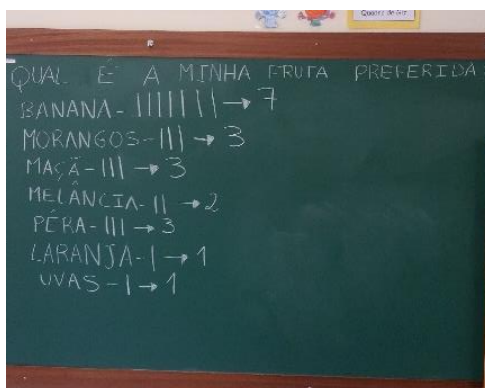 Quadro de Giz
QUAL É A MINHA FRUTA PREFERIDA
BANANA-||||||| → 7
MORANGOS-||| → 3
MAÇÃ-||| → 3
MELÂNCIA-|| → 2
PÊRA-||| → 3
LARANJA-| → 1
UVAS-| → 1